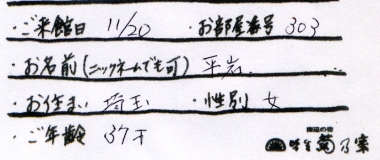 ・ご来館日 11/20 ・お部屋番号 303
・お名前(ニックネームでも可) 平岩
・お住まい 埼玉 ・性別 女
・ご年齢 37才
海辺の宿
味宝 菊乃家